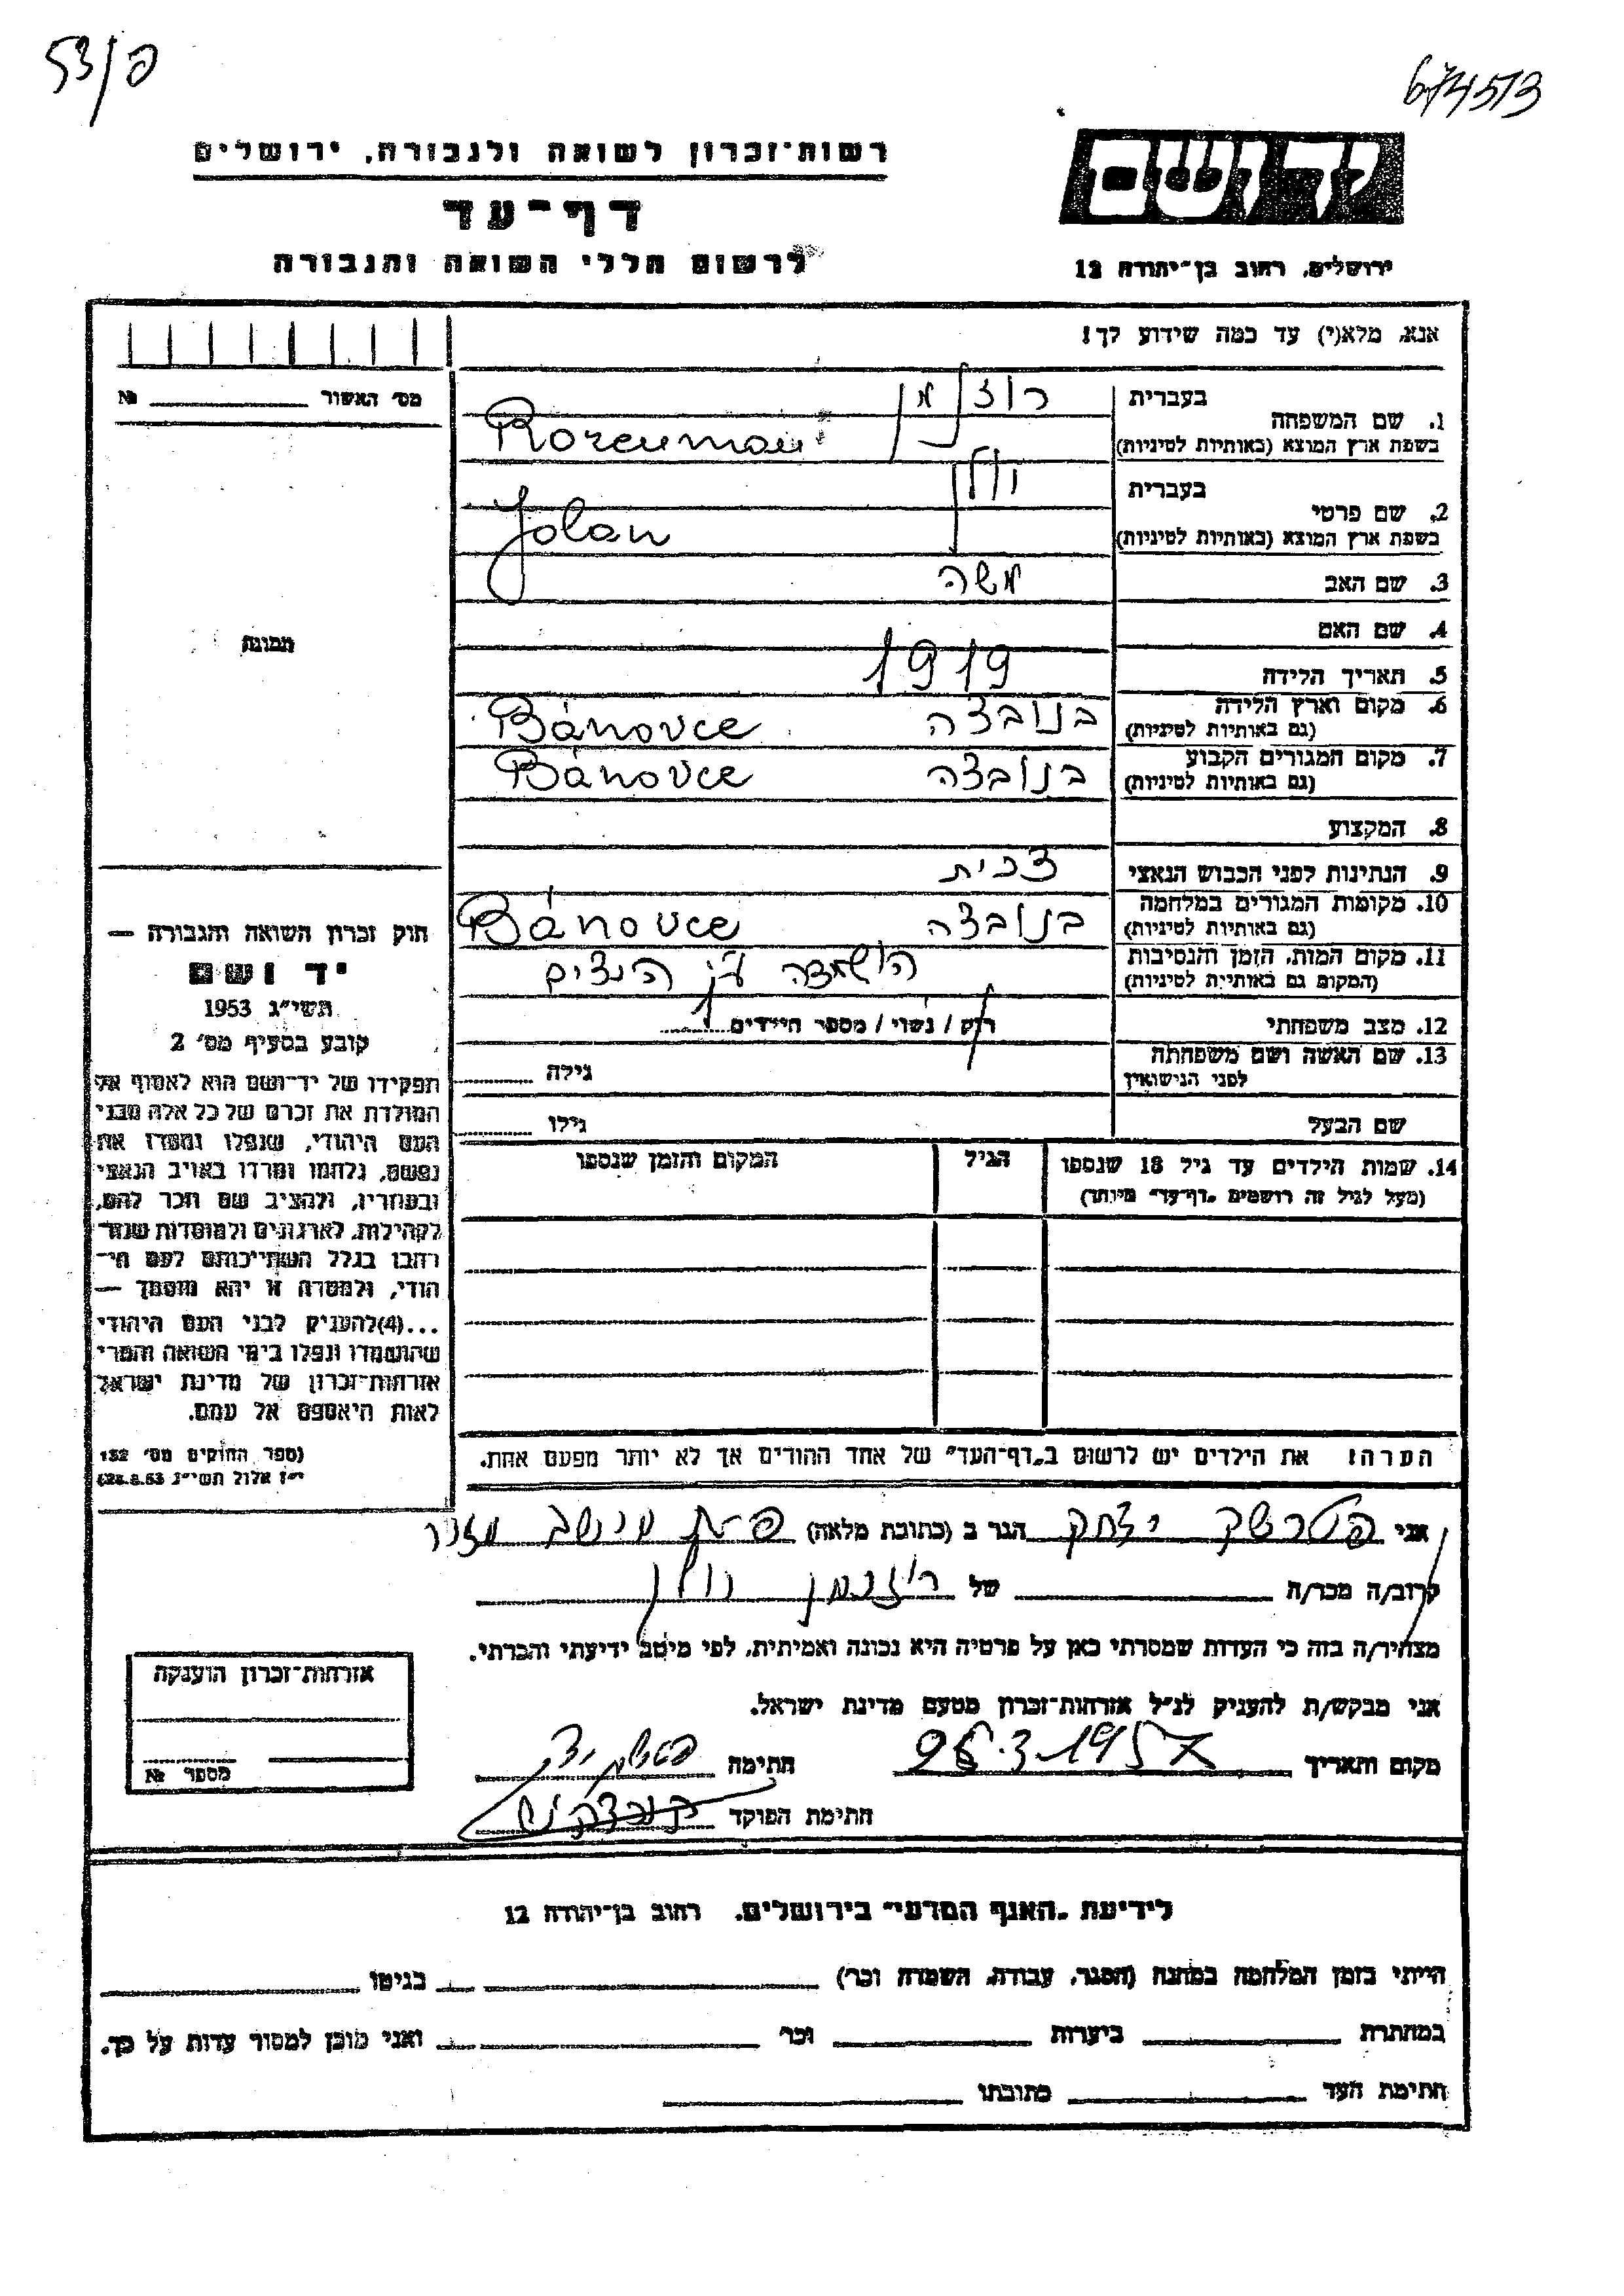 53/פ
674513
רשות־זכרון לשואה ולגבורה, ירושלים
יד ושם
דף־עד
לרשום חללי השואה והגבורה
ירושלים, רחוב בן־יהודה 12
אנא, מלא(י) עד כמה שידוע לך!
מס׳ האשור № 
1. שם המשפחה בעברית רוזנמן
בשפת ארץ המוצא (באותיות לטיניות) Rozenman
2. שם פרטי בעברית יולן
בשפת ארץ המוצא (באותיות לטיניות) Jolan
3. שם האב משה
4. שם האם
תמונה
5. תאריך הלידה 1919
6. מקום וארץ הלידה בנובצה Bánovce
(גם באותיות לטיניות)
7. מקום המגורים הקבוע בנובצה Bánovce
(גם באותיות לטיניות)
8. המקצוע
9. הנתינות לפני הכבוש הנאצי צכית
10. מקומות המגורים במלחמה בנובצה Bánovce
(גם באותיות לטיניות)
11. מקום המות, הזמן והנסיבות הושמדה ע״י הנצים
(המקום גם באותיות לטיניות)
12. מצב משפחתי רוק / נשוי / מספר הילדים
13. שם האשה ושם משפחתה גילה
לפני הנישואין
שם הבעל גילו
14. שמות הילדים עד גיל 18 שנספו הגיל המקום והזמן שנספו
(מעל לגיל זה רושמים „דף־עד" מיוחד)
חוק זכרון השואה והגבורה —
יד ושם
תשי״ג 1953
קובע בסעיף מס׳ 2
תפקידו של יד־ושם הוא לאסוף אל
המולדת את זכרם של כל אלה מבני
העם היהודי, שנפלו ומסרו את
נפשם, נלחמו ומרדו באויב הנאצי
ובעוזריו, ולהציב שם וזכר להם,
לקהילות, לארגונים ולמוסדות שנח־
רבו בגלל השתייכותם לעם הי־
הודי, ולמטרה זו יהא מוסמך —
...(4)להעניק לבני העם היהודי
שהושמדו ונפלו בימי השואה והמרי
אזרחות־זכרון של מדינת ישראל
לאות היאספם אל עמם.
(ספר החוקים מס׳ 132
י״ז אלול תשי״ג 28.8.53)
הערה: את הילדים יש לרשום ב„דף־העד" של אחד ההורים אך לא יותר מפעם אחת.
אני יצחק הגר ב (כתובת מלאה) מושב מזור
קרוב/ה מכר/ה של רוזנמן יולן
מצהיר/ה בזה כי העדות שמסרתי כאן על פרטיה היא נכונה ואמיתית, לפי מיטב ידיעתי והכרתי.
אני מבקש/ת להעניק לנ״ל אזרחות־זכרון מטעם מדינת ישראל.
מקום ותאריך 26.3.1957 חתימה
חתימת הפוקד
אזרחות־זכרון הוענקה
מספר №
לידיעת „האגף המדעי" בירושלים, רחוב בן־יהודה 12
הייתי בזמן המלחמה במחנה (הסגר, עבודה, השמדה וכו׳) בגיטו
במחתרת ביערות וכו׳ ואני מוכן למסור עדות על כך.
חתימת העד כתובתו